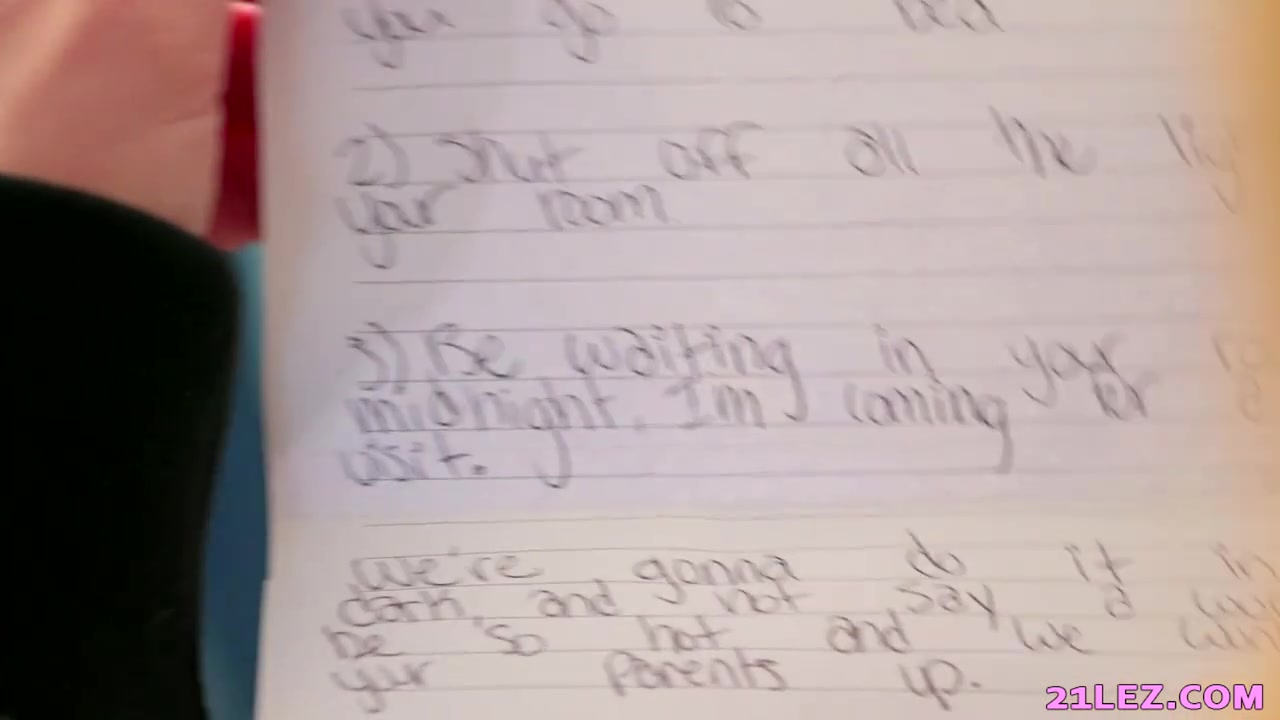 you go to bed
2) Shut off all the
your room
3) Be waiting in your
midnight. I'm coming for
visit.
we're gonna do it in
dark, and not say a
be so hot and we
your parents up.
21LEZ.COM